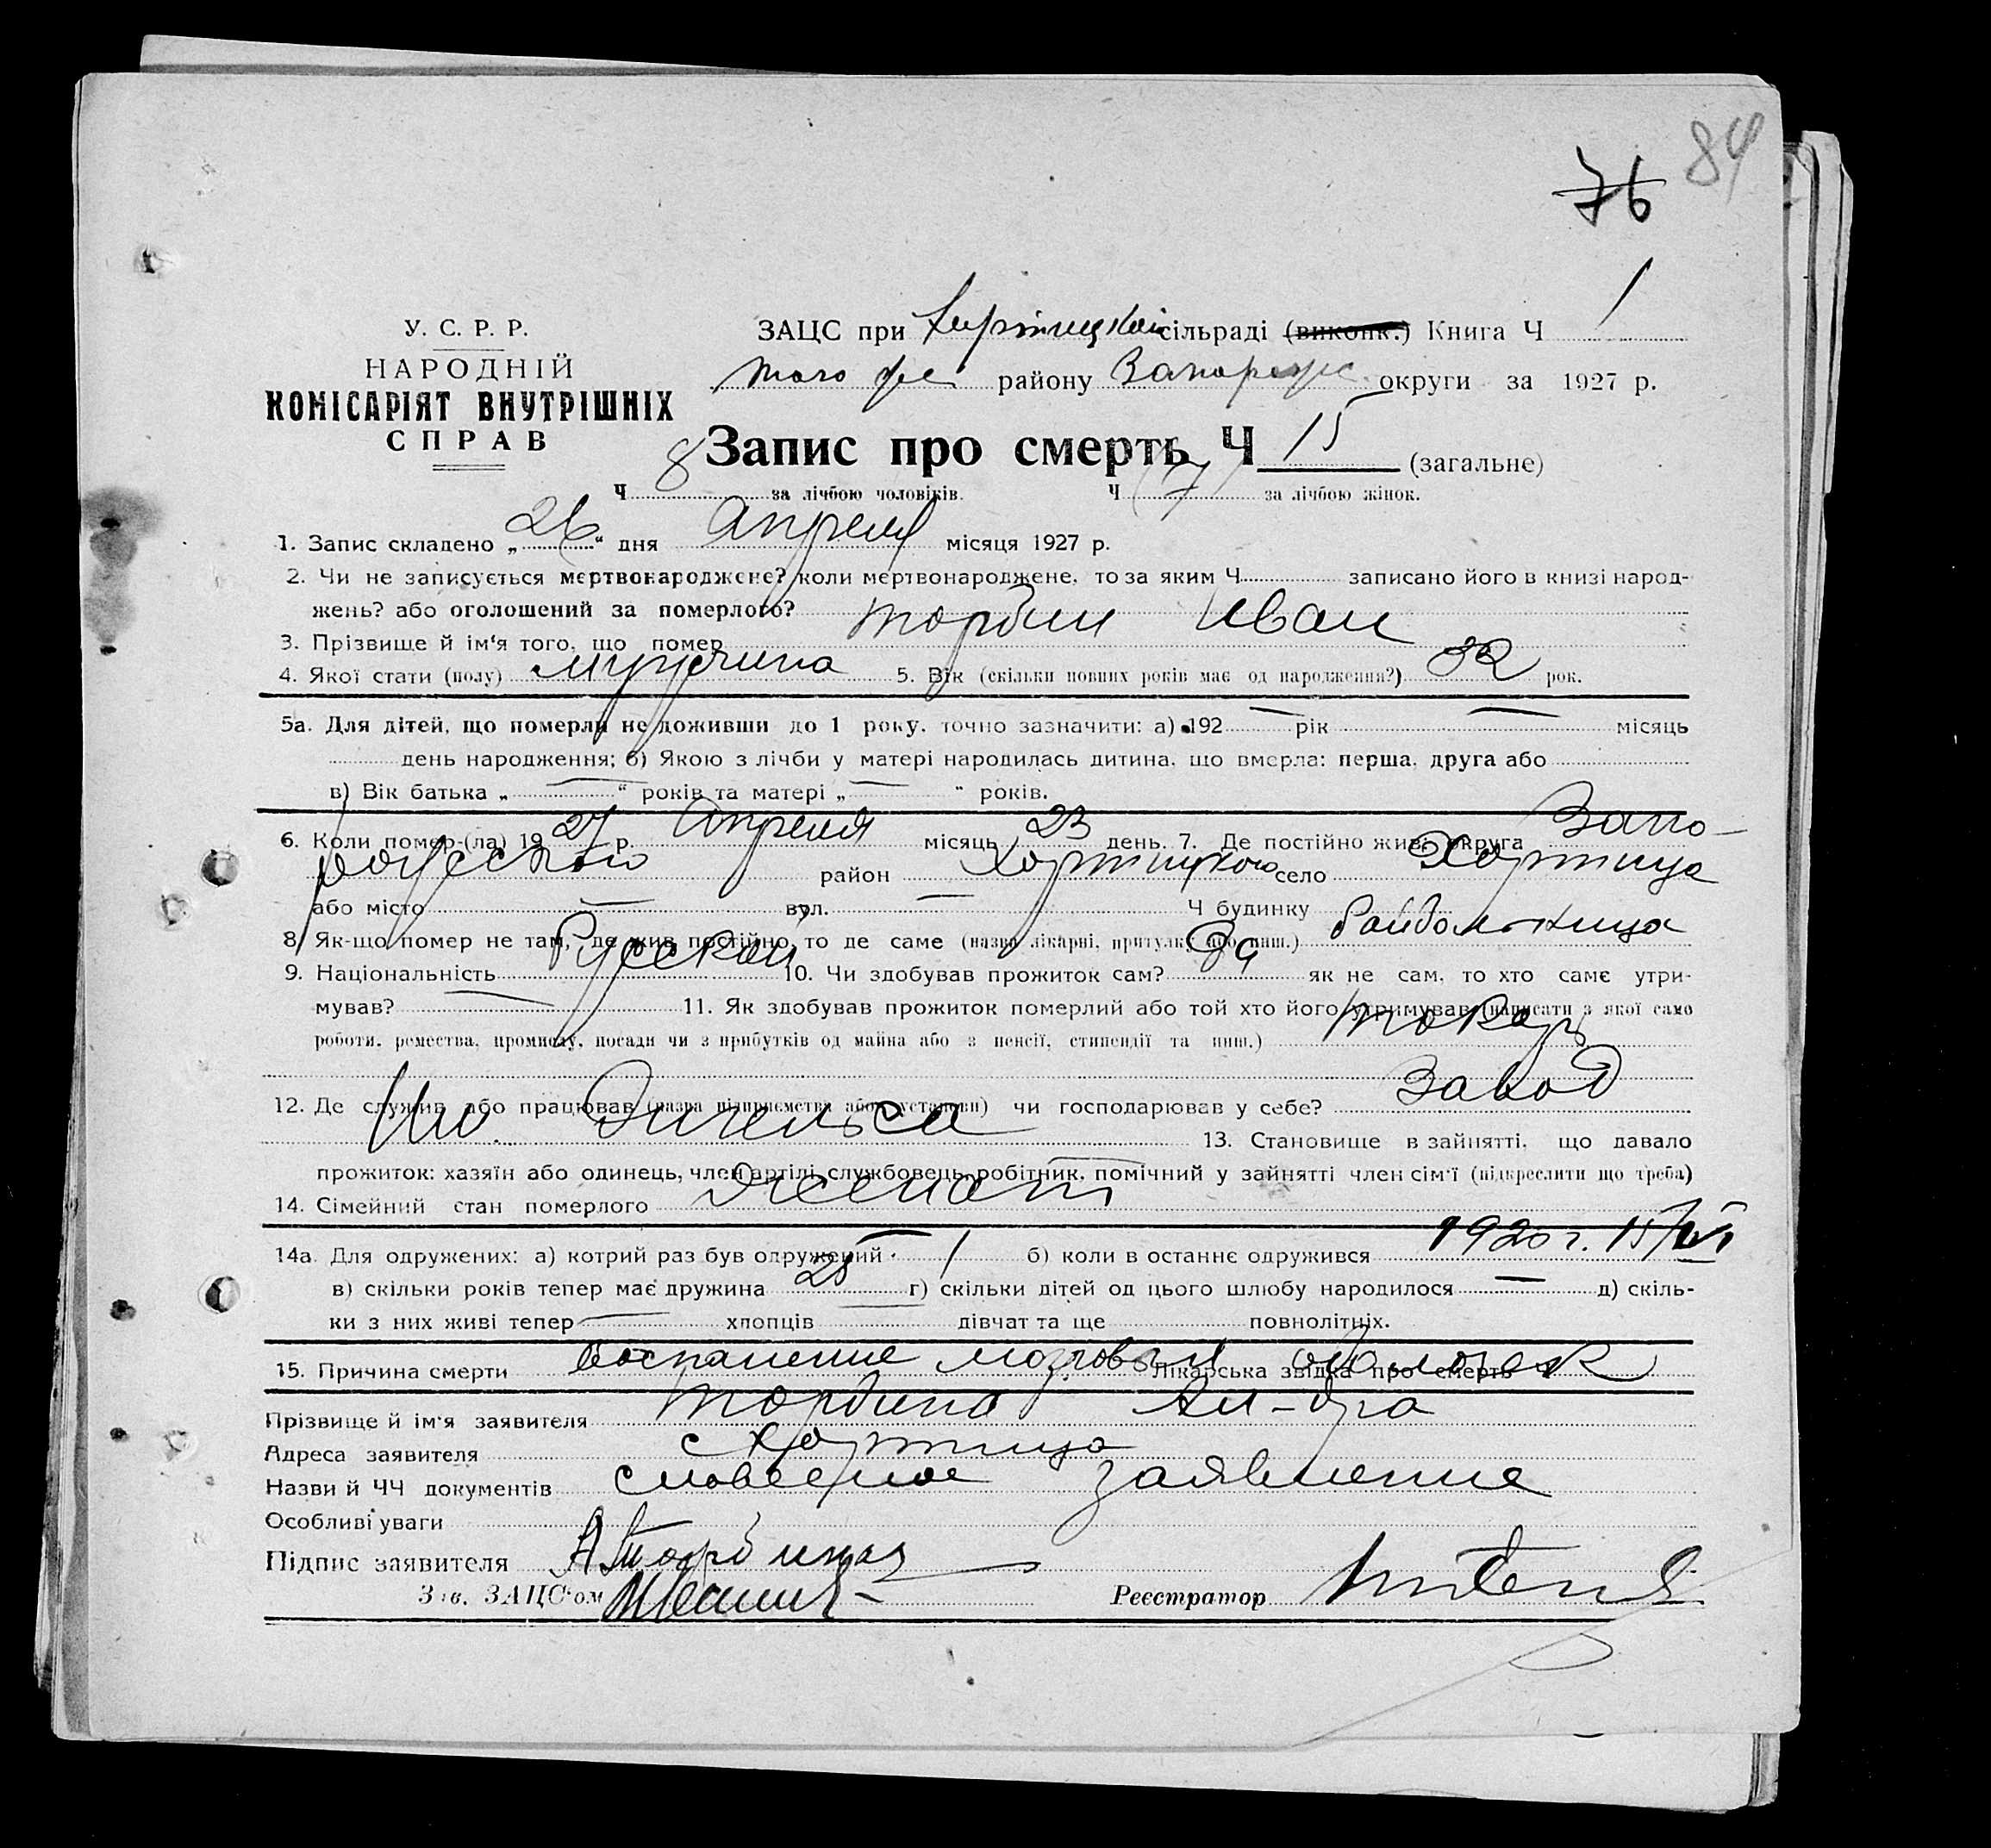 84
76
У. С. Р. Р.
НАРОДНІЙ
КОМІСАРІЯТ ВНУТРІШНІХ
СПРАВ
ЗАЦС при Хортицкой сільраді (виконк.) Книга Ч 1
того же району Запорож округи за 1927 р.
Запис про смерть Ч 15 (загальне)
Ч 8 за лічбою чоловіків. Ч (7) за лічбою жінок.
1. Запис складено „26“ дня Апреля місяця 1927 р.
2. Чи не записується мертвонароджене? коли мертвонароджене, то за яким Ч записано його в книзі народ-
жень? або оголошений за померлого?
3. Прізвище й ім'я того, що помер Торбин Иван
4. Якої стати (полу) мужчина 5. Вік (скільки повних років має од народження?) 32 рок.
5а. Для дітей, що померли не доживши до 1 року, точно зазначити: а) 192 — рік — місяць
день народження; б) Якою з лічби у матері народилась дитина, що вмерла: перша, друга або
в) Вік батька „ — “ років та матері „ — “ років.
6. Коли помер-(ла) 1927 р. Апреля місяць 23 день. 7. Де постійно жив: округа Запо-
рожского район Хортицкого село Хортица
або місто — вул. — Ч будинку
8. Як-що помер не там, де жив постійно, то де саме (назва лікарні, притулку або инш.) Райбольница
9. Національність Русский 10. Чи здобував прожиток сам? Да як не сам, то хто саме утри-
мував? — 11. Як здобував прожиток померлий або той хто його утримував (написати з якої само
роботи, ремества, промислу, посади чи з прибутків од майна або з пенсії, стипендії та инш.) токарь
12. Де служив або працював (назва підприємства або установи) чи господарював у себе? Завод
Им Энгельса 13. Становище в зайнятті, що давало
прожиток: хазяїн або одинець, член артілі, службовець, робітник, помічний у зайнятті член сім'ї (підкреслити що треба)
14. Сімейний стан померлого Женат
14а. Для одружених: а) котрий раз був одружений 1 б) коли в останнє одружився 1920 г. 15/VI
в) скільки років тепер має дружина 25 г) скільки дітей од цього шлюбу народилося — д) скіль-
ки з них живі тепер — хлопців — дівчат та ще повнолітніх.
15. Причина смерти Воспаление мозговых оболочек Лікарська звідка про смерть
Прізвище й ім'я заявителя Торбина Ал-дра
Адреса заявителя с Хортица
Назви й ЧЧ документів словесное заявление
Особливі уваги
Підпис заявителя А Торбиная
Зав. ЗАЦС'ом
Реєстратор